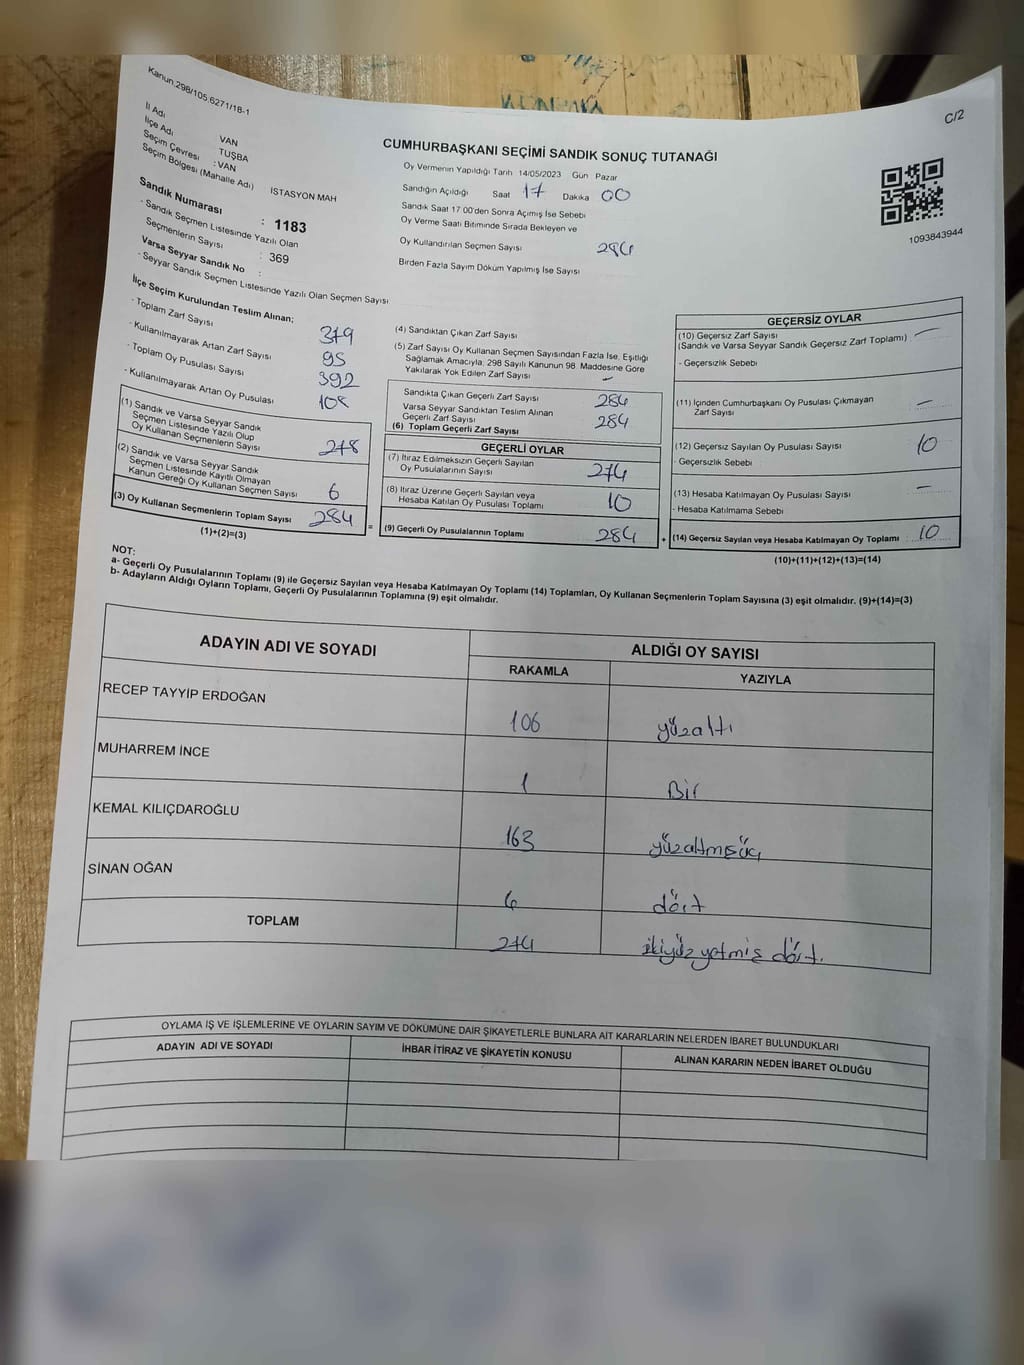 Kanun.298/105,6271/18-1
C/2
İl Adı VAN
İlçe Adı TUŞBA
Seçim Çevresi : VAN
Seçim Bölgesi (Mahalle Adı) İSTASYON MAH
Sandık Numarası : 1183
- Sandık Seçmen Listesinde Yazılı Olan
Seçmenlerin Sayısı : 369
Varsa Seyyar Sandık No :
- Seyyar Sandık Seçmen Listesinde Yazılı Olan Seçmen Sayısı
CUMHURBAŞKANI SEÇİMİ SANDIK SONUÇ TUTANAĞI
Oy Vermenin Yapıldığı Tarih 14/05/2023 Gün Pazar
Sandığın Açıldığı Saat 17 Dakika 00
Sandık Saat 17:00'den Sonra Açımış İse Sebebi
Oy Verme Saati Bitiminde Sırada Bekleyen ve
Oy Kullandırılan Seçmen Sayısı 284
Birden Fazla Sayım Döküm Yapılmış İse Sayısı
1093843944
İlçe Seçim Kurulundan Teslim Alınan;
- Toplam Zarf Sayısı 379
- Kullanılmayarak Artan Zarf Sayısı 95
- Toplam Oy Pusulası Sayısı 392
- Kullanılmayarak Artan Oy Pusulası 108
(1) Sandık ve Varsa Seyyar Sandık
Seçmen Listesinde Yazılı Olup
Oy Kullanan Seçmenlerin Sayısı 278
(2) Sandık ve Varsa Seyyar Sandık
Seçmen Listesinde Kayıtlı Olmayan
Kanun Gereği Oy Kullanan Seçmen Sayısı 6
(3) Oy Kullanan Seçmenlerin Toplam Sayısı 284
(1)+(2)=(3)
=
(4) Sandıktan Çıkan Zarf Sayısı
(5) Zarf Sayısı Oy Kullanan Seçmen Sayısından Fazla İse, Eşitliği
Sağlamak Amacıyla, 298 Sayılı Kanunun 98. Maddesine Göre
Yakılarak Yok Edilen Zarf Sayısı –
Sandıkta Çıkan Geçerli Zarf Sayısı 284
Varsa Seyyar Sandıktan Teslim Alınan
Geçerli Zarf Sayısı 284
(6) Toplam Geçerli Zarf Sayısı
GEÇERLİ OYLAR
(7) İtiraz Edilmeksizin Geçerli Sayılan
Oy Pusulalarının Sayısı 274
(8) İtiraz Üzerine Geçerli Sayılan veya
Hesaba Katılan Oy Pusulası Toplamı 10
(9) Geçerli Oy Pusulalarının Toplamı 284
+
GEÇERSİZ OYLAR
(10) Geçersiz Zarf Sayısı –
(Sandık ve Varsa Seyyar Sandık Geçersiz Zarf Toplamı)
- Geçersizlik Sebebi
(11) İçinden Cumhurbaşkanı Oy Pusulası Çıkmayan –
Zarf Sayısı
(12) Geçersiz Sayılan Oy Pusulası Sayısı 10
- Geçersizlik Sebebi
(13) Hesaba Katılmayan Oy Pusulası Sayısı –
- Hesaba Katılmama Sebebi
(14) Geçersiz Sayılan veya Hesaba Katılmayan Oy Toplamı : 10
(10)+(11)+(12)+(13)=(14)
NOT:
a- Geçerli Oy Pusulalarının Toplamı (9) ile Geçersiz Sayılan veya Hesaba Katılmayan Oy Toplamı (14) Toplamları, Oy Kullanan Seçmenlerin Toplam Sayısına (3) eşit olmalıdır. (9)+(14)=(3)
b- Adayların Aldığı Oyların Toplamı, Geçerli Oy Pusulalarının Toplamına (9) eşit olmalıdır.
ADAYIN ADI VE SOYADI ALDIĞI OY SAYISI
RAKAMLA YAZIYLA
RECEP TAYYİP ERDOĞAN 106 yüzaltı
MUHARREM İNCE 1 Bir
KEMAL KILIÇDAROĞLU 163 yüzaltmışüç
SİNAN OĞAN 4 dört
TOPLAM 274 ikiyüz yetmiş dört.
OYLAMA İŞ VE İŞLEMLERİNE VE OYLARIN SAYIM VE DÖKÜMÜNE DAİR ŞİKAYETLERLE BUNLARA AİT KARARLARIN NELERDEN İBARET BULUNDUKLARI
ADAYIN ADI VE SOYADI İHBAR İTİRAZ VE ŞİKAYETİN KONUSU ALINAN KARARIN NEDEN İBARET OLDUĞU